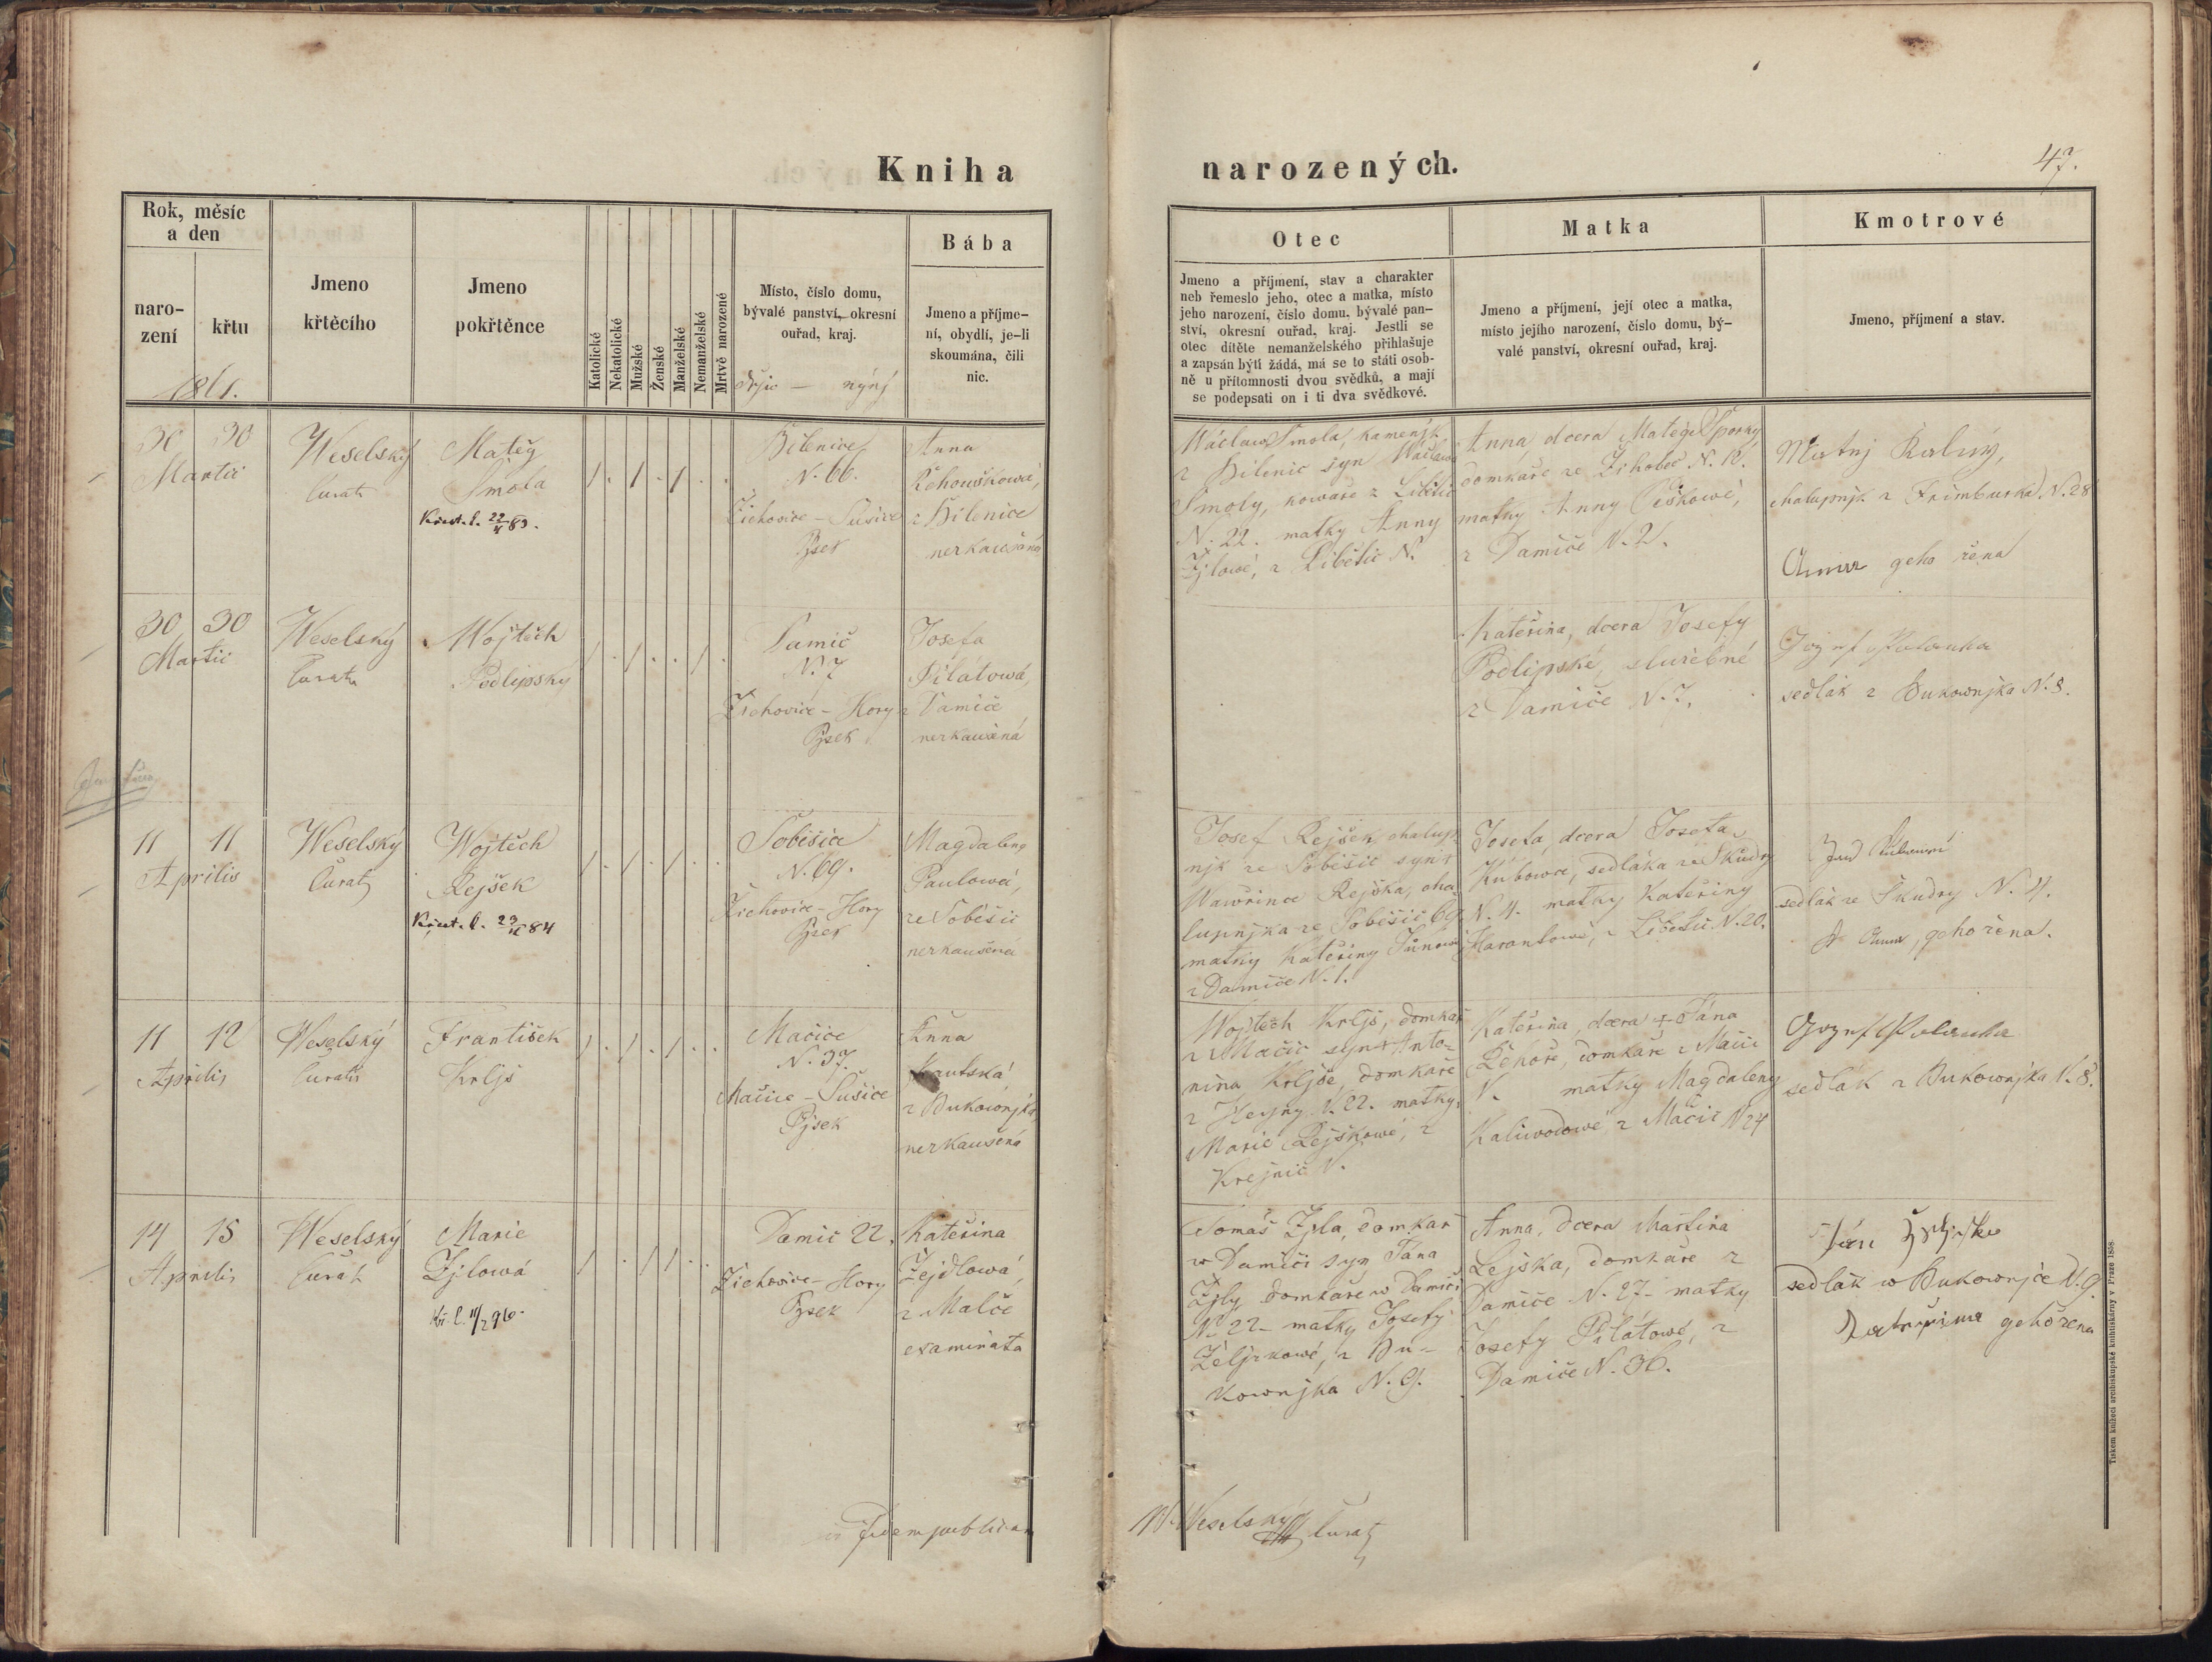 Kniha narozených.
47.
Rok, měsíc
a den
naro-
zení
křtu
1861.
Jmeno
křtěcího
Jmeno
pokřtěnce
Katolické
Nekatolické
Mužské
Ženské
Manželské
Nemanželské
Mrtvě narozené
Místo, číslo domu,
bývalé panství, okresní
ouřad, kraj.
Bába
Jmeno a příjme-
ní, obydlí, je-li
skoumána, čili
nic.
Otec
Jmeno a příjmení, stav a charakter
neb řemeslo jeho, otec a matka, místo
jeho narození, číslo domu, bývalé pan-
ství, okresní ouřad, kraj. Jestli se
otec dítěte nemanželského přihlašuje
a zapsán býti žádá, má se to státi osob-
ně u přítomnosti dvou svědků, a mají
se podepsati on i ti dva svědkové.
Matka
Jmeno a příjmení, její otec a matka,
místo jejího narození, číslo domu, bý-
valé panství, okresní ouřad, kraj.
Kmotrové
Jmeno, příjmení a stav.
30 30
Martii
Weselský
Curat
Matěg
Smola
Křest. l. 22/X 83.
Bilenice
N. 66.
Žichovice – Sušice
Pjsek
Anna
Řehouškowá,
z Bilenice
nezkaušená
Wáclaw Smola, kamenjk
z Bilenic syn Wáclawa
Smoly, kowaře z Libětic
N. 22. matky Anny
Zjlowé, z Libětic N.
Anna, dcera Matěge Sporky
domkaře ze Žihobec N. 12.
matky Anny Čiškowé,
z Damíče N. 2.
Matěj Kalný,
chalupnjk z Frimburka N. 28
Anna geho žena
30 30
Martii
Weselský
Curat
Wojtěch
Podlipský
Damíč
N. 7
Žichovice – Hory
Pjsek
Josefa
Pilátowá,
z Damíče
nezkaušená
Kateřina, dcera Josefy
Podlipské, služebné
z Damíče N. 7.
Jozef Palanka
sedlák z Bukownjka N. 8.
11 11
Aprilis
Weselský
Curat
Wojtěch
Rejšek
Křest. l. 23/IX 84
Soběšice
N. 69.
Žichovice – Hory
Pjsek
Magdalena
Paulowá,
ze Soběšic
nezkaušená
Josef Rejšek, chalup-
njk ze Soběšic syn +
Wawřince Rejška, cha-
lupnjka ze Soběšic 69
matky Kateřiny Tůnowé
z Damíče N. 1.
Josefa, dcera Josefa
Kubowce, sedláka ze Škudry
N. 4. matky Kateřiny
Harantowé, z Libětic N. 20.
sedlák ze Škudry N. 4.
Anna, geho žena.
11 12
Aprilis
Weselský
Curat
František
Krljš
Mačice
N. 37.
Mačice – Sušice
Pjsek
Anna
Krautská
z Bukownjka
nezkaušená
Wojtěch Krljš, domkař
z Mačic syn + Anto-
nína Krljše, domkaře
z Hejny N. 22. matky
Marie Rejškowé, z
Krejnic N.
Kateřina, dcera + Jána
Řehoře, domkaře z Mačic
N. matky Magdaleny
Kaliwodowé z Mačic N 24
Jozef Palanka
sedlák z Bukownjka N. 8.
14 15
Aprilis
Weselský
Curat
Marie
Zjlowá
Kř. l. 11/2 96.
Damíč 22.
Žichovice – Hory
Pjsek
Kateřina
Zejdlowá,
z Malče
examinata
Tomáš Zjla, domkář
w Damíči syn Jána
Zjly domkaře w Damíči
N. 22 – matky Josefy
Željzkowé, z Bu-
kownjka N. 9.
Anna, dcera Martina
Lejska, domkaře z
Damíče N. 27 – matky
Josefy Pilátowé, z
Damíče N. 36.
Ján Željsko
sedlák w Bukownjce N. 9
Kateřina geho žena
in fidem publicam
W Weselský
Curat
Tiskem knížecí arcibiskupské knihtiskárny v Praze 1858.